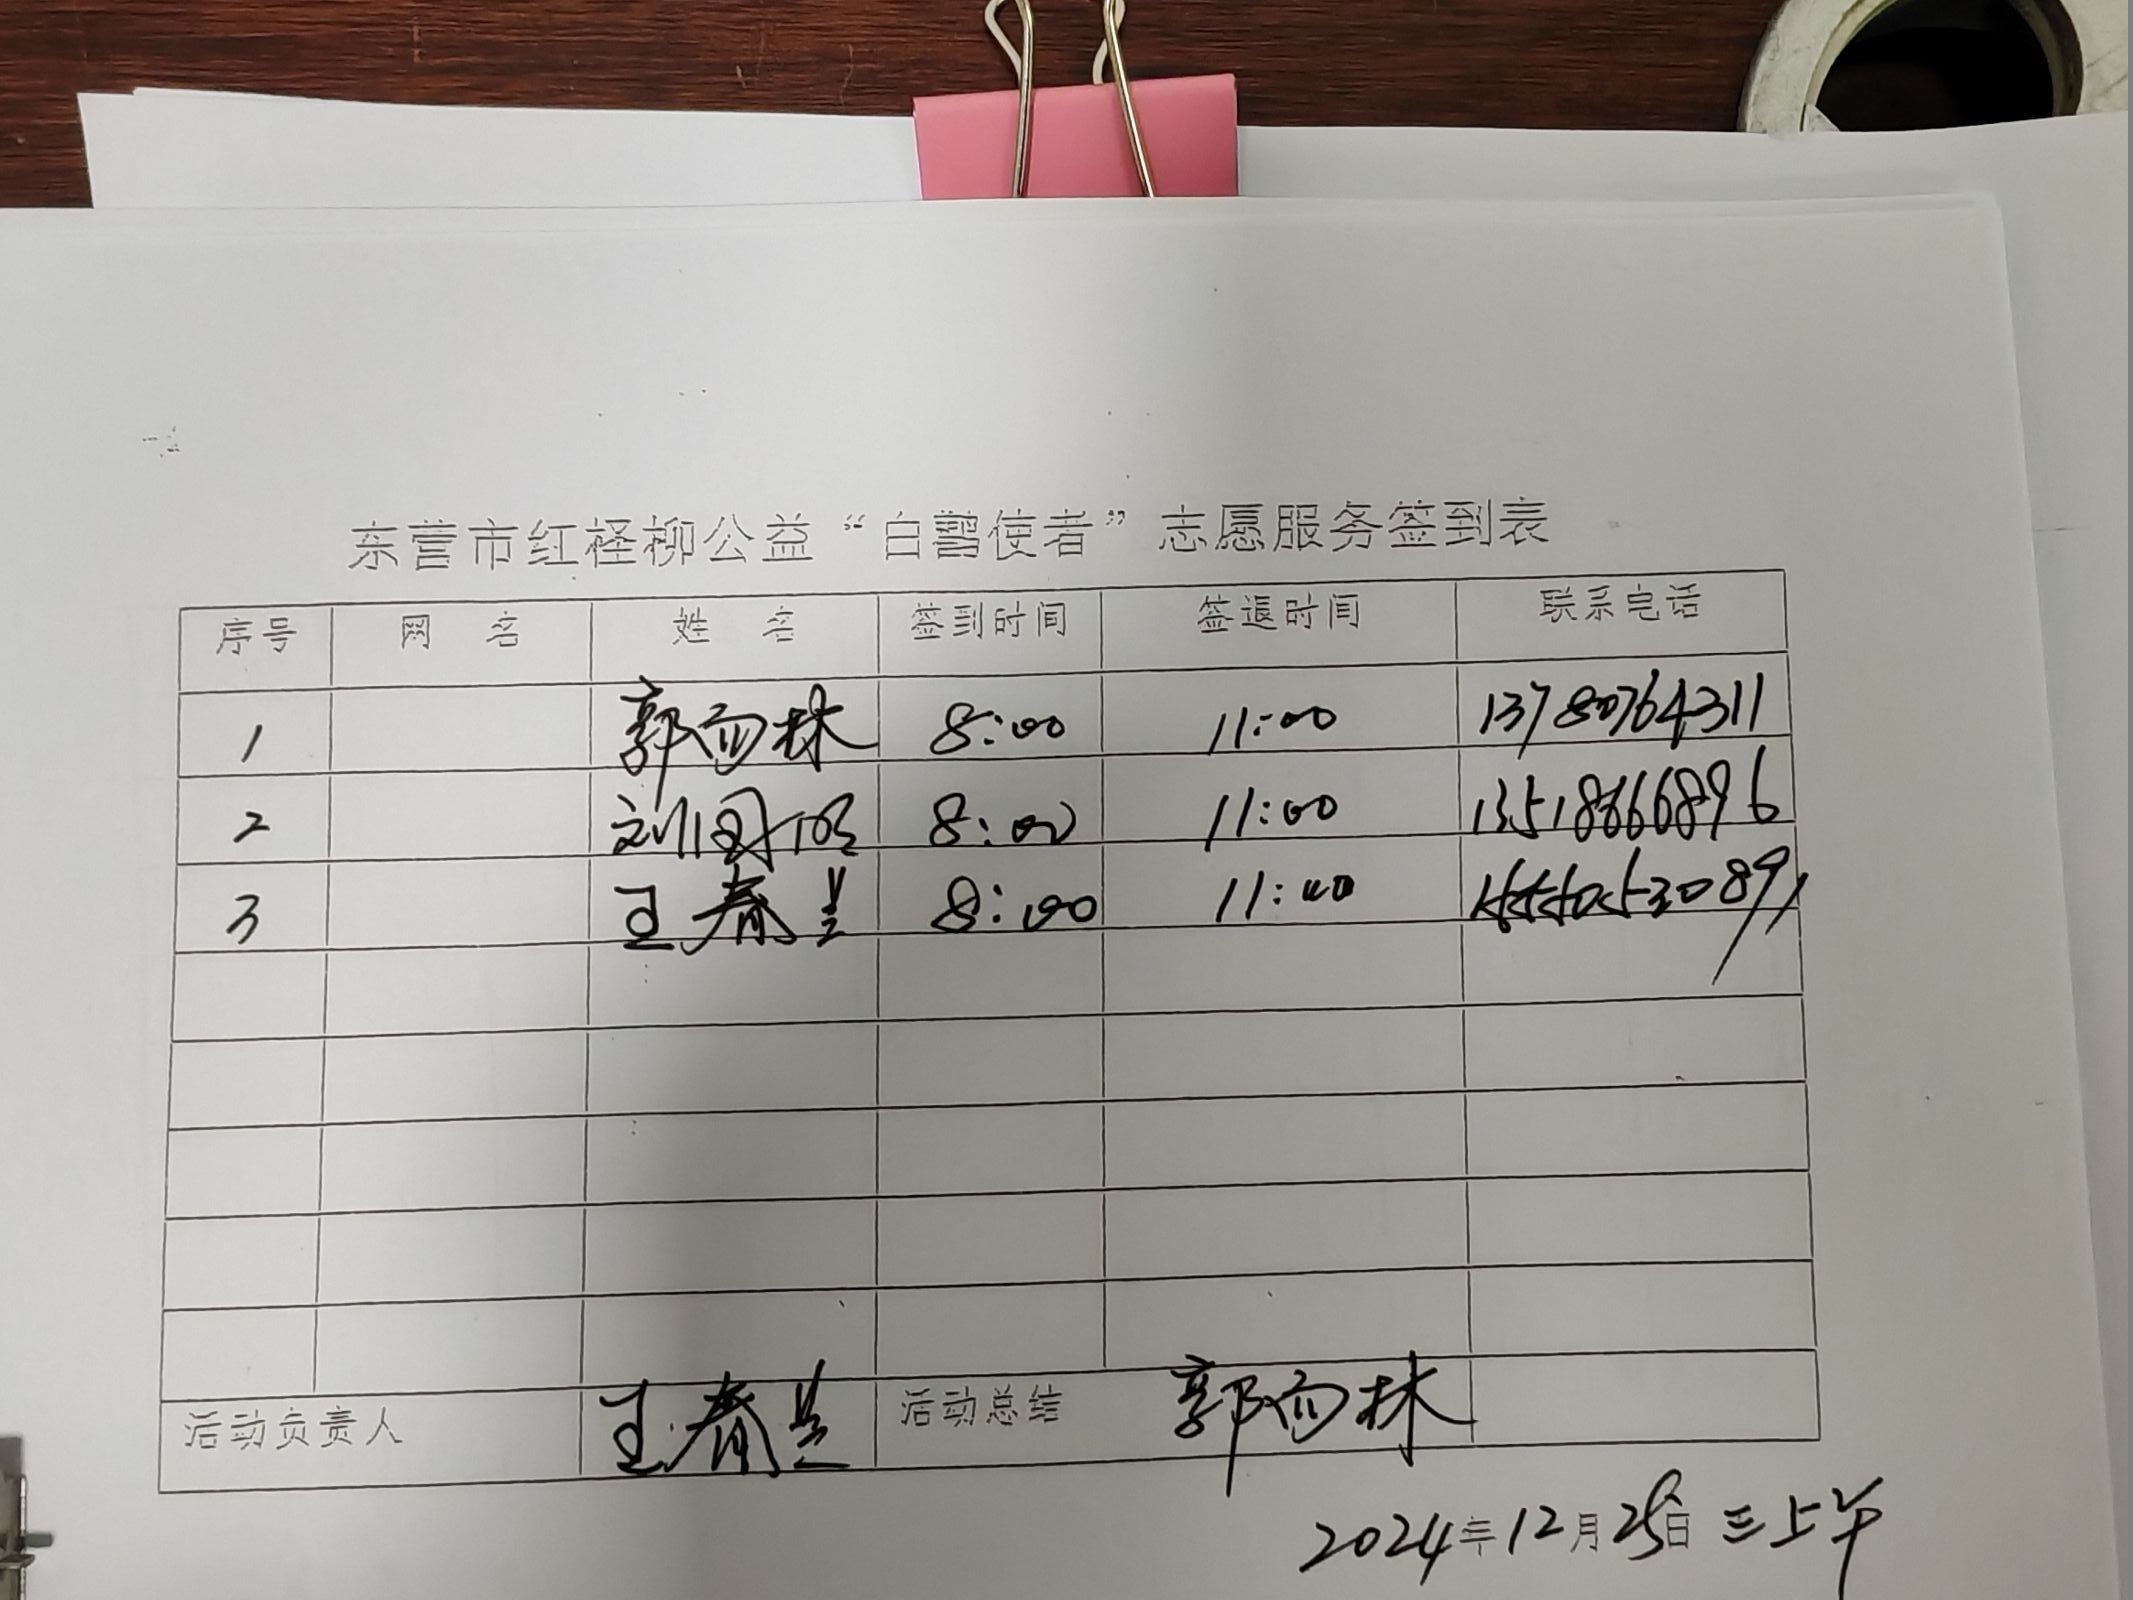 东营市红柽柳公益“白鹭使者”志愿服务签到表
序号 网 名 姓 名 签到时间 签退时间 联系电话
1 郭而林 8:00 11:00 13780764311
2 8:00 11:00 13518666896
3 王春兰 8:00 11:00
活动负责人 王春兰 活动总结 郭而林
2024年12月25日 三上午